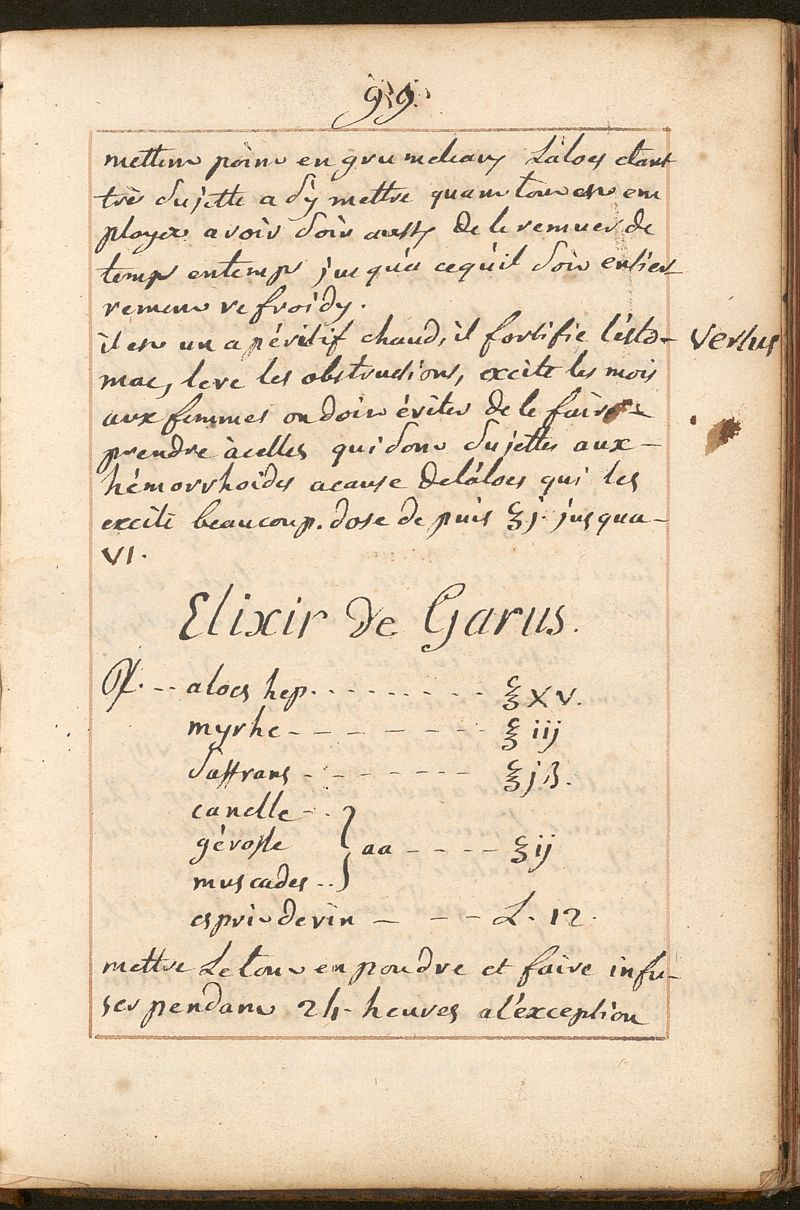 99.
mettent point en grumeleaux L'aloes etant
très sujette a s'y mettre quant tout est em
ployer avoir soin aussy de le remuer de
temps entemps jusqu'a cequ'il soit entier
rement refroidy.
il est un apéritif chaud, il fortifie l'esto-
vertus
mac, leve les obstructions, excite les mois
aux femmes on doit éviter de le faire
prendre àcelles qui sont sujettes aux-
hémorrhoïdes acause del'áloes qui les
excite beaucoup. dose de puis ℥j. jusqua-
VI.
Elixir de Garus.
℞. -- aloes hep. - - - - - - - ℥XV.
myrhe - - - - - - - ℥iij
saffrans - - - - - - - ℥jß.
canelle - -
gérofle } aa - - - - ℥ij
muscades ..
esprit devin - - - L. 12.
mettre Letout en poudre et faire infu-
ser pendant 24. heures al'éxception